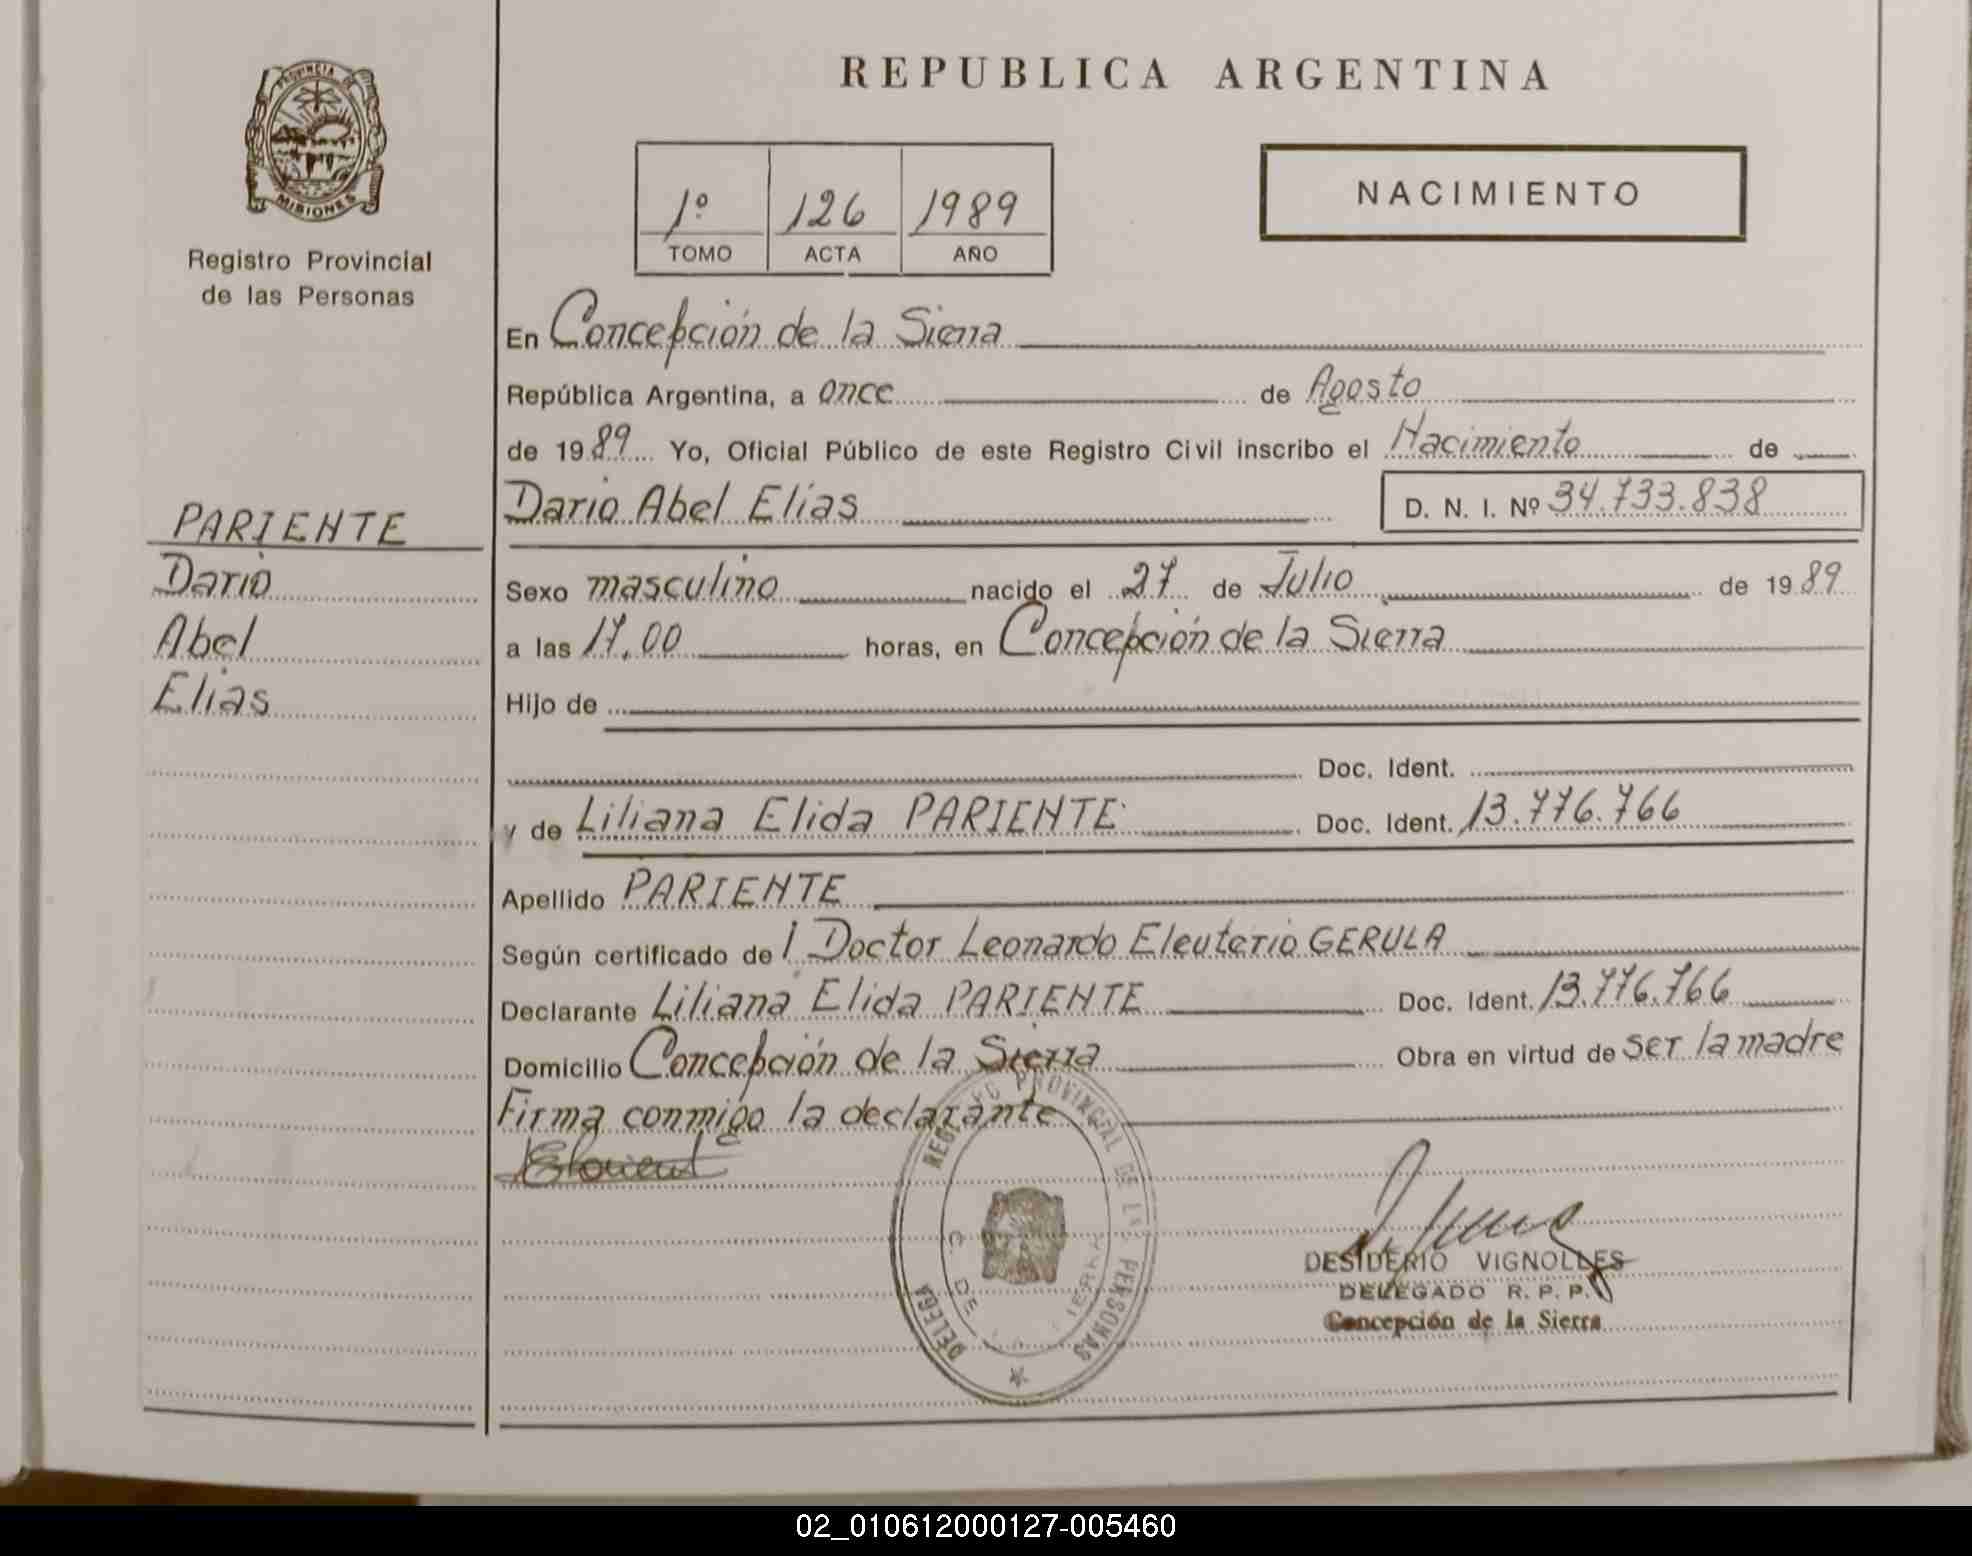 PROVINCIA DE
MISIONES
Registro Provincial
de las Personas
PARIENTE
Dario
Abel
Elias
REPUBLICA ARGENTINA
1º 126 1989
TOMO ACTA AÑO
NACIMIENTO
En Concepción de la Sierra
República Argentina, a once de Agosto
de 1989 Yo, Oficial Público de este Registro Civil inscribo el Nacimiento de
Dario Abel Elias D. N. I. Nº 34.733.838
Sexo masculino nacido el 27 de Julio de 1989
a las 17,00 horas, en Concepción de la Sierra
Hijo de
Doc. Ident.
y de Liliana Elida PARIENTE Doc. Ident. 13.776.766
Apellido PARIENTE
Según certificado de l Doctor Leonardo Eleuterio GERULA
Declarante Liliana Elida PARIENTE Doc. Ident. 13.776.766
Domicilio Concepción de la Sierra Obra en virtud de ser la madre
Firma conmigo la declarante
PROVINCIAL DE LAS PERSONAS
C. DE
DESIDERIO VIGNOLLES
DELEGADO R. P. P.
Concepción de la Sierra
02_010612000127-005460